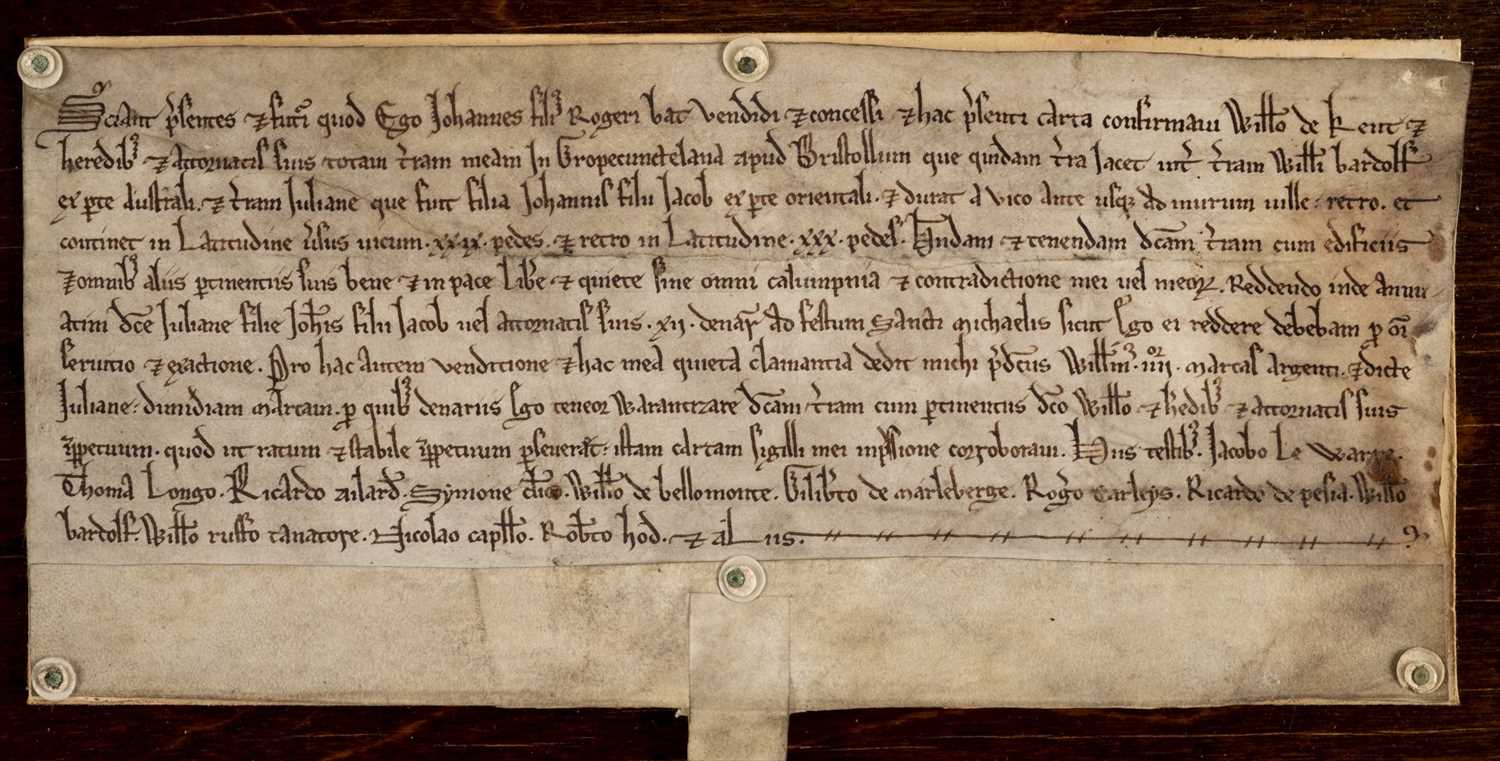 Sciant p̃sentes ⁊ futr̃i quod Ego Johannes filiꝰ Rogeri bat vendidi ⁊ concessi ⁊ hac p̃senti carta confirmavi Will̃o de Kent ⁊
heredibꝫ ⁊ attornatis suis totam t̃ram meam In Gropecuntelana apud Bristollum que quidam t̃ra Jacet int̃ t̃ram Will̃i bardolf
ex p̱te australi . ⁊ t̃ram Juliane que fuit filia Johannis filii Jacob ex p̱te orientali . ⁊ durat a vico ante usqꝫ ad murum uille : retro . et
continet in Latitudine ũsus uicum . xxix . pedes . ⁊ retro in Latitudine . xxx . pedes . H̃ndam ⁊ tenendam dc̃am t̃ram cum edificiis
⁊ omnibꝫ aliis p̱tinentiis suis bene ⁊ in pace Lib̃e ⁊ quiete sine omni calumpnia ⁊ contradictione mei uel meoꝝ . Reddendo inde annu
atim dc̃e Juliane filie Joh̃is filii Jacob uel attornatis suis . xii . denar̃ ad festum Sancti Michaelis sicut Ego ei reddere debebam p̱ om̃i
seruitio ⁊ exactione . Pro hac autem venditione ⁊ hac mea quieta clamantia dedit michi p̃dc̃tus Will̃m̃ . iiij᷒ . marcas argenti . ⁊ dicte
Juliane : dimidiam marcam . p̱ quibꝫ denariis Ego teneor warantizare dc̃am t̃ram cum p̱tinentiis dc̃o Will̃o ⁊ h̃edibꝫ ⁊ attornatis suis
ip̱petuum . quod ut ratum ⁊ stabile ip̱petuum p̱seuerat : istam cartam sigilli mei inp̃ssione corroboraui . Hiis testibꝫ . Jacobo Le Warre .
Thoma Longo . Ricardo ailard̃ . Symone cl̃ico . Will̃o de bellomonte . Gilib̃to de marleberge . Rog̃o Ricardo de pesia . Will̃o
bardolf . Will̃o ruffo tanatore . Nicolao capll̃o . Rob̃to hod . ⁊ aliis .